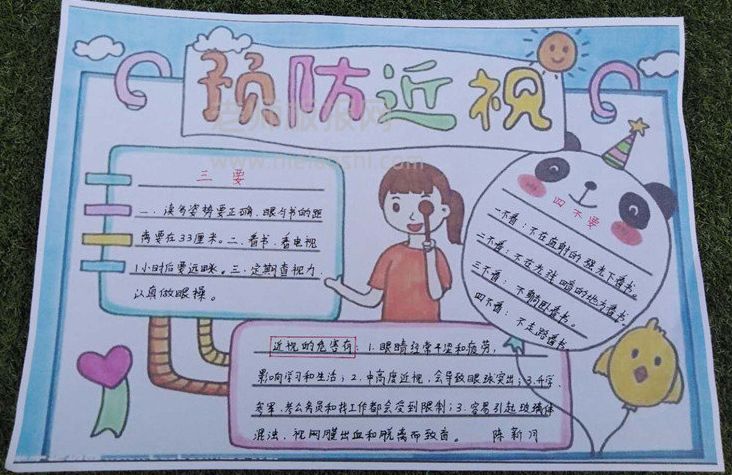 预防近视
老师板报网
三 要
一、读书姿势要正确,眼与书的距
离要在33厘米。二、看书、看电视
1小时后要远眺。三、定期查视力,
认真做眼操。
四不要
一不看:不在直射的强光下看书。
二不看:不在光线暗的地方看书。
三不看:不躺卧看书。
四不看:不走路看书。
近视的危害有:1.眼睛经常干涩和疲劳,
影响学习和生活;2.中高度近视,会导致眼球突出;3.升学、
参军、考公务员和找工作都会受到限制;3.容易引起玻璃体
混浊、视网膜出血和脱离而致盲。 陈新